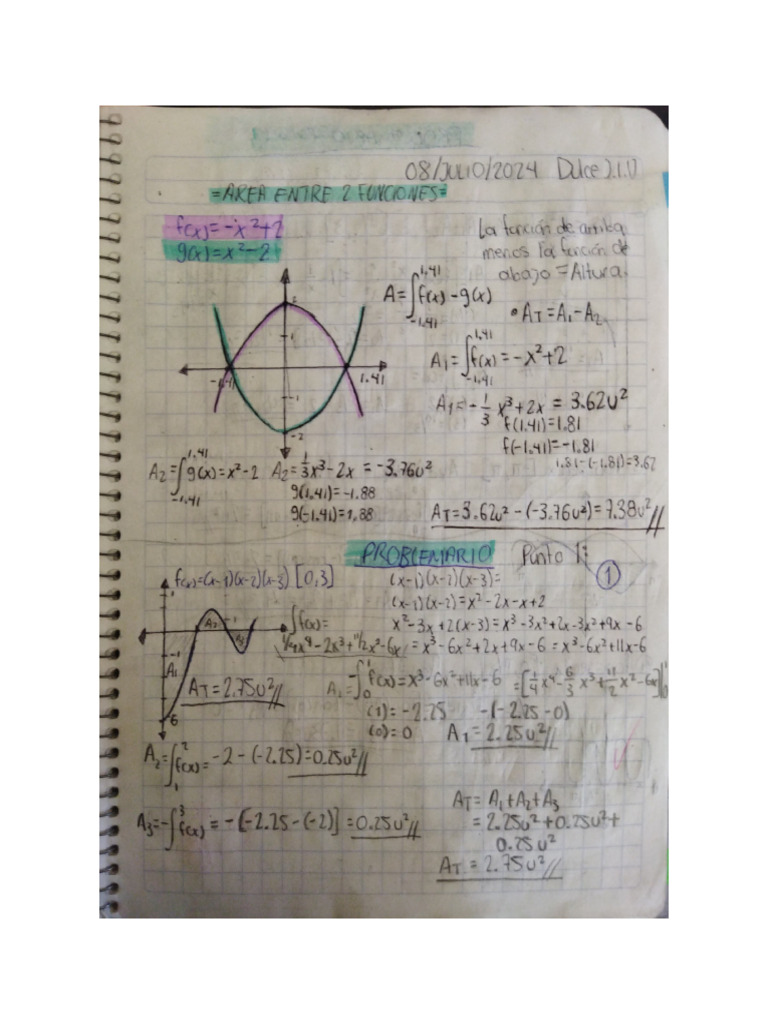 08/JULIO/2024 Dulce J.I.V
=AREA ENTRE 2 FUNCIONES=
f(x)=-x²+2
g(x)=x²-2
La función de arriba
menos la función de
abajo = Altura.
A=∫_{-1.41}^{1.41} f(x)-g(x)
• A_T=A₁-A₂
A₁=∫_{-1.41}^{1.41} f(x)=-x²+2
A₁=-1/3 x³+2x = 3.62u²
f(1.41)=1.81
f(-1.41)=-1.81
1.81-(-1.81)=3.62
1
-1
-2
-1.41
1.41
A₂=∫_{-1.41}^{1.41} g(x)=x²-2 A₂=1/3x³-2x = -3.76u²
g(1.41)=-1.88
g(-1.41)=1.88
A_T=3.62u²-(-3.76u²)=7.38u²//
PROBLEMARIO Punto 1:
①
f(x)=(x-1)(x-2)(x-3) [0,3]
(x-1)(x-2)(x-3)=
(x-1)(x-2)=x²-2x-x+2
x²-3x+2(x-3)=x³-3x²+2x-3x²+9x-6
=x³-6x²+2x+9x-6=x³-6x²+11x-6
∫f(x)=
1/4x⁴-2x³+11/2x²-6x
1
-1
-6
A₁
A₂
A₃
A_T=2.75u²//
A₁=-∫_0^1 f(x)=x³-6x²+11x-6 =[1/4 x⁴-6/3 x³+11/2 x²-6x]_0^1
(1)=-2.25 -(-2.25-0)
(0)=0 A₁=2.25u²//
A₂=∫_1^2 f(x)=-2-(-2.25)=0.25u²//
A₃=-∫^3 f(x)=-[-2.25-(-2)]=0.25u²//
A_T=A₁+A₂+A₃
=2.25u²+0.25u²+
0.25u²
A_T=2.75u²//